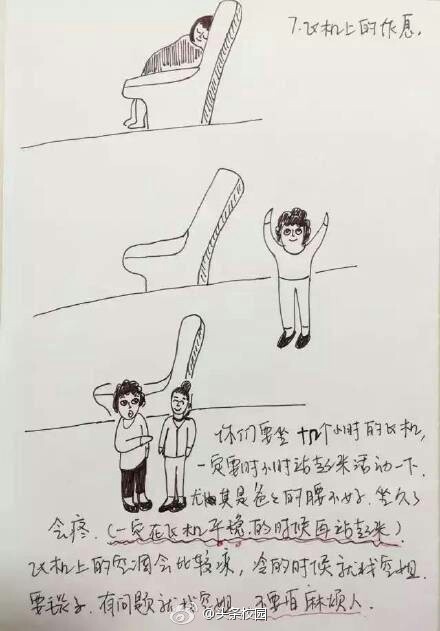 7.飞机上的作息.
你们要坐十几个小时的飞机,
一定要时不时站起来活动一下.
尤其是爸爸的腰不好.坐久了
会疼.(一定在飞机平稳的时候再站起来)
飞机上的空调会比较凉,冷的时候就找空姐
要毯子.有问题就找空姐 不要怕麻烦人.
@头条校园